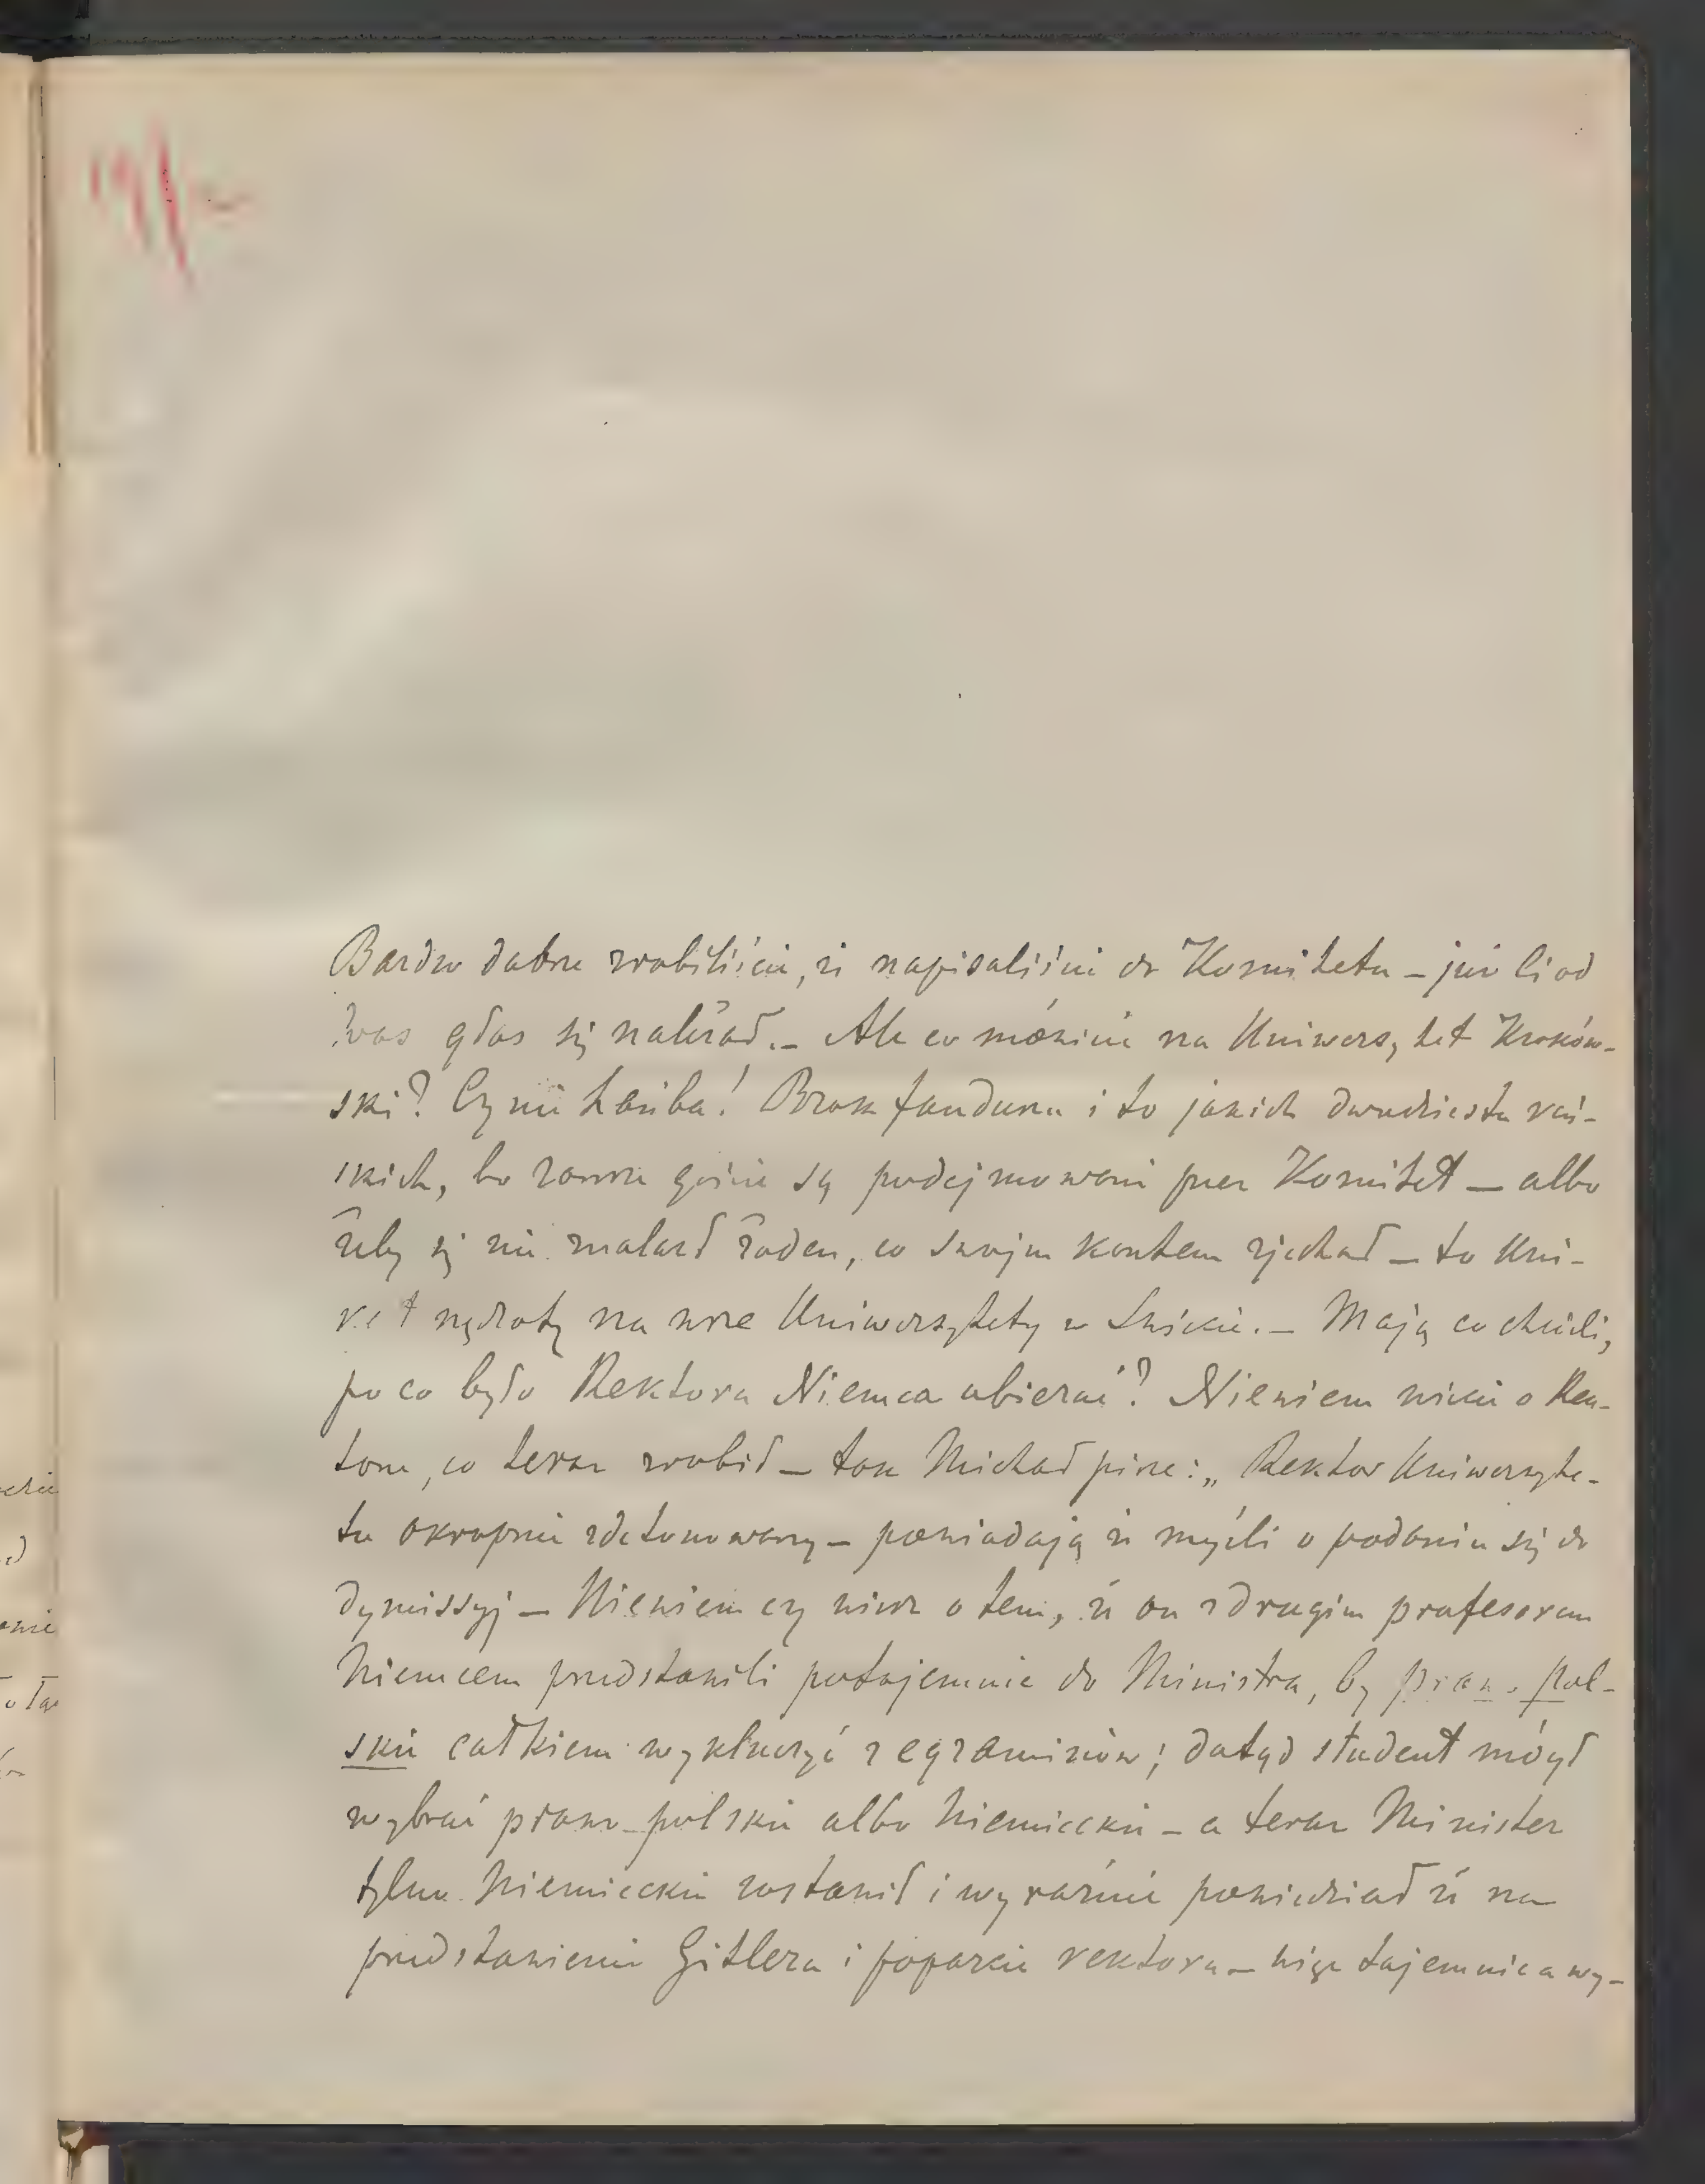 Bardzo dobrze zrobiliście, że napisaliście do Komitetu – już li od
Was głos się należał. – Ale co mówicie na Uniwersytet Krakow-
ski? Czy nie hańba! Brak funduszu i to jakich dwudziestu reń-
skich, bo zawsze goście są podejmowani przez Komitet – albo
żeby się nie znalazł żaden, co swojm kosztem zjechał – to Uni-
nędzoty na wsze Uniwersytety w Świecie. – Mają co chcieli,
po co było Rektora Niemca obierać? Niewiem wiecie o Rek-
torze, co teraz zrobił – tak Michał pisze: „Rektor Uniwersyte-
tu okropnie zdetonowany – powiadają że myśli o podaniu się do
dymissyj – Niewiem czy wiesz o tem, że on z drugim profesorem
Niemcem przedstawili potajemnie do Ministra, by prawo pol-
skie całkiem wykluczyć z egzaminów; dotąd student mógł
wybrać prawo polskie albo Niemieckie – a teraz Minister
tylko Niemieckie zostawił i wyraźnie powiedział że na
przedstawienie Gitlera i poparcie rektora – więc tajemnica wy-